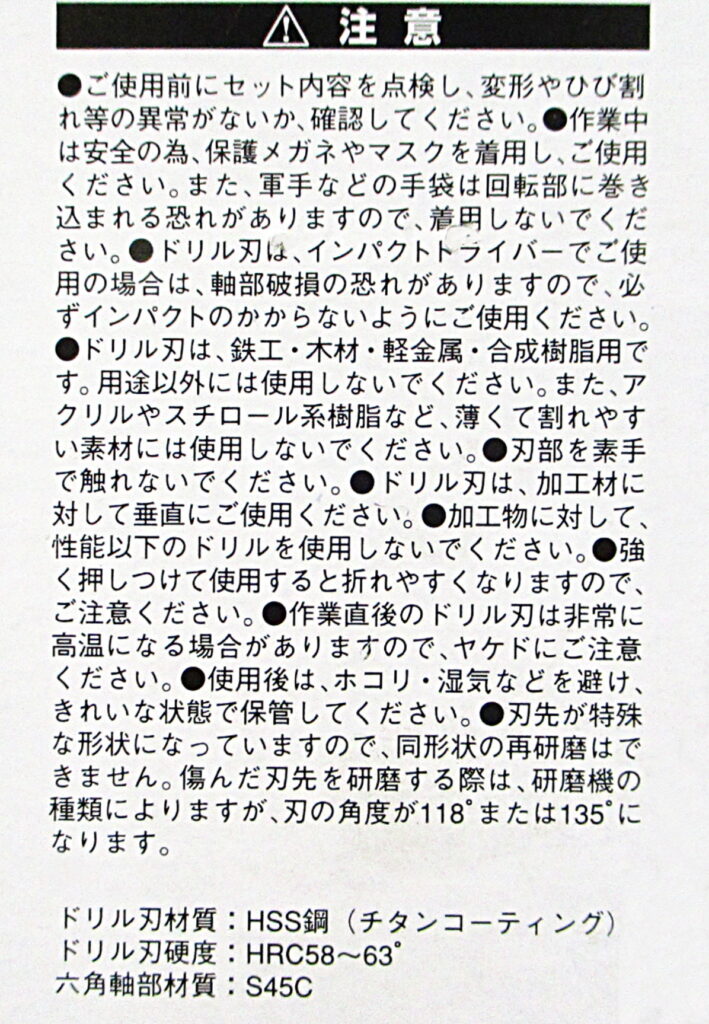 ⚠ 注意
●ご使用前にセット内容を点検し、変形やひび割
れ等の異常がないか、確認してください。●作業中
は安全の為、保護メガネやマスクを着用し、ご使用
ください。また、軍手などの手袋は回転部に巻き
込まれる恐れがありますので、着用しないでくだ
さい。●ドリル刃は、インパクトドライバーでご使
用の場合は、軸部破損の恐れがありますので、必
ずインパクトのかからないようにご使用ください。
●ドリル刃は、鉄工・木材・軽金属・合成樹脂用で
す。用途以外には使用しないでください。また、ア
クリルやスチロール系樹脂など、薄くて割れやす
い素材には使用しないでください。●刃部を素手
で触れないでください。●ドリル刃は、加工材に
対して垂直にご使用ください。●加工物に対して、
性能以下のドリルを使用しないでください。●強
く押しつけて使用すると折れやすくなりますので、
ご注意ください。●作業直後のドリル刃は非常に
高温になる場合がありますので、ヤケドにご注意
ください。●使用後は、ホコリ・湿気などを避け、
きれいな状態で保管してください。●刃先が特殊
な形状になっていますので、同形状の再研磨はで
きません。傷んだ刃先を研磨する際は、研磨機の
種類によりますが、刃の角度が118°または135°に
なります。
ドリル刃材質：HSS鋼（チタンコーティング）
ドリル刃硬度：HRC58〜63°
六角軸部材質：S45C